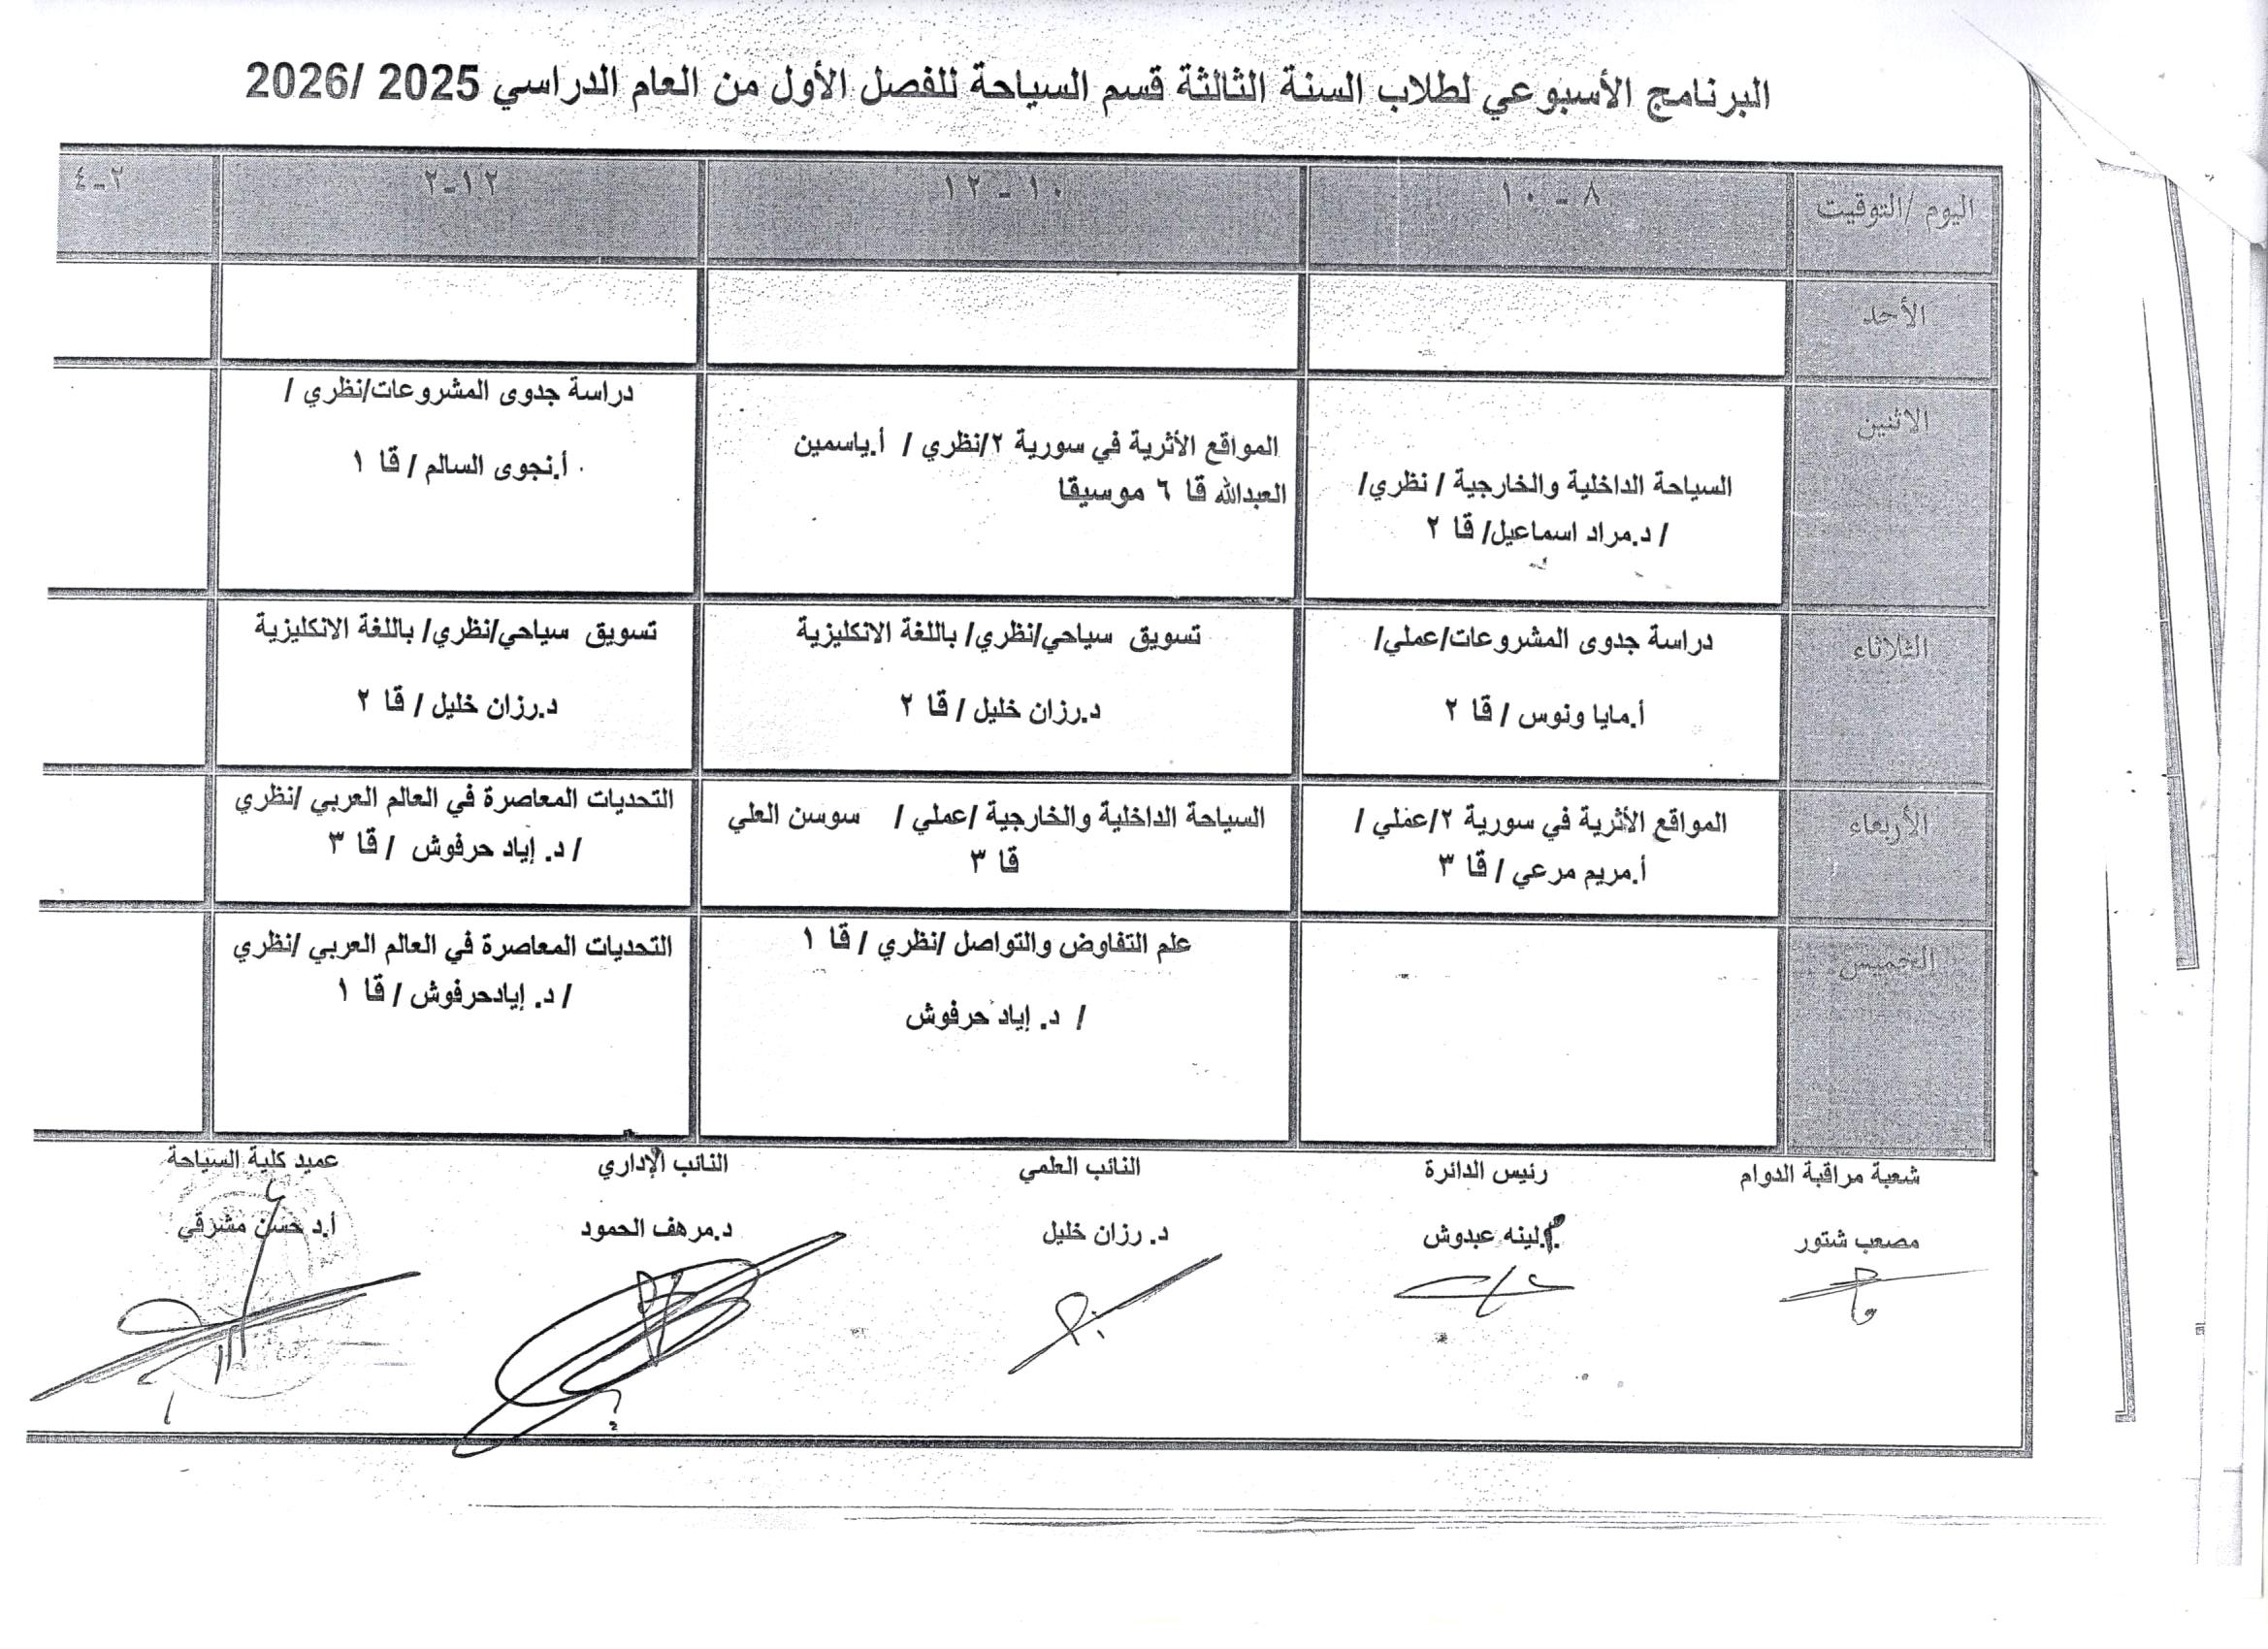 البرنامج الأسبوعي لطلاب السنة الثالثة قسم السياحة للفصل الأول من العام الدراسي 2025 /2026
اليوم /التوقيت
٨ - ١٠
١٠ - ١٢
١٢-٢
٢-٤
الأحد
الاثنين
السياحة الداخلية والخارجية / نظري/
/ د.مراد اسماعيل/ قا ٢
المواقع الأثرية في سورية ٢/نظري / أ.ياسمين
العبدالله قا ٦ موسيقا
دراسة جدوى المشروعات/نظري /
أ.نجوى السالم / قا ١
الثلاثاء
دراسة جدوى المشروعات/عملي/
أ.مايا ونوس / قا ٢
تسويق سياحي/نظري/ باللغة الانكليزية
د.رزان خليل / قا ٢
تسويق سياحي/نظري/ باللغة الانكليزية
د.رزان خليل / قا ٢
الأربعاء
المواقع الأثرية في سورية ٢/عملي /
أ.مريم مرعي / قا ٣
السياحة الداخلية والخارجية /عملي / سوسن العلي
قا ٣
التحديات المعاصرة في العالم العربي /نظري
/ د. إياد حرفوش / قا ٣
الخميس
علم التفاوض والتواصل /نظري / قا ١
/ د. إياد حرفوش
التحديات المعاصرة في العالم العربي /نظري
/ د. إيادحرفوش / قا ١
شعبة مراقبة الدوام
رئيس الدائرة
النائب العلمي
النائب الإداري
عميد كلية السياحة
مصعب شتور
لينه عبدوش
د. رزان خليل
د.مرهف الحمود
أ.د حسن مشرقي